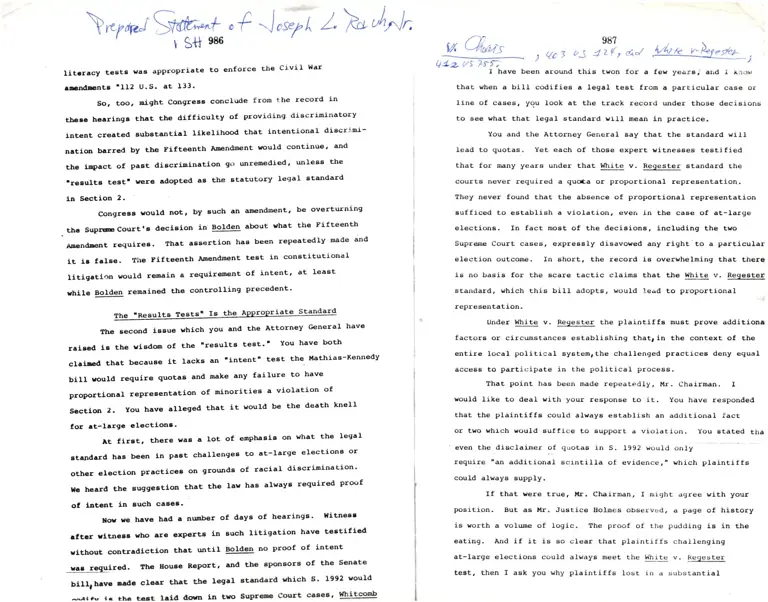 Prepared Statement of Joseph L. Rauh, Jr.
1 SH 986
literacy tests was appropriate to enforce the Civil War
amendments "112 U.S. at 133.
So, too, might Congress conclude from the record in
these hearings that the difficulty of providing discriminatory
intent created substantial likelihood that intentional discrimi-
nation barred by the Fifteenth Amendment would continue, and
the impact of past discrimination go unremedied, unless the
"results test" were adopted as the statutory legal standard
in Section 2.
Congress would not, by such an amendment, be overturning
the Supreme Court's decision in Bolden about what the Fifteenth
Amendment requires. That assertion has been repeatedly made and
it is false. The Fifteenth Amendment test in constitutional
litigation would remain a requirement of intent, at least
while Bolden remained the controlling precedent.
The "Results Tests" Is the Appropriate Standard
The second issue which you and the Attorney General have
raised is the wisdom of the "results test." You have both
claimed that because it lacks an "intent" test the Mathias-Kennedy
bill would require quotas and make any failure to have
proportional representation of minorities a violation of
Section 2. You have alleged that it would be the death knell
for at-large elections.
At first, there was a lot of emphasis on what the legal
standard has been in past challenges to at-large elections or
other election practices on grounds of racial discrimination.
We heard the suggestion that the law has always required proof
of intent in such cases.
Now we have had a number of days of hearings. Witness
after witness who are experts in such litigation have testified
without contradiction that until Bolden no proof of intent
was required. The House Report, and the sponsors of the Senate
bill, have made clear that the legal standard which S. 1992 would
codify is the test laid down in two Supreme Court cases, Whitcomb
987
v. Chavis, 403 US 124, and White v. Regester,
412 US 755.
I have been around this twon for a few years, and I know
that when a bill codifies a legal test from a particular case or
line of cases, you look at the track record under those decisions
to see what that legal standard will mean in practice.
You and the Attorney General say that the standard will
lead to quotas. Yet each of those expert witnesses testified
that for many years under that White v. Regester standard the
courts never required a quota or proportional representation.
They never found that the absence of proportional representation
sufficed to establish a violation, even in the case of at-large
elections. In fact most of the decisions, including the two
Supreme Court cases, expressly disavowed any right to a particular
election outcome. In short, the record is overwhelming that there
is no basis for the scare tactic claims that the White v. Regester
standard, which this bill adopts, would lead to proportional
representation.
Under White v. Regester the plaintiffs must prove additiona
factors or circumstances establishing that, in the context of the
entire local political system, the challenged practices deny equal
access to participate in the political process.
That point has been made repeatedly, Mr. Chairman. I
would like to deal with your response to it. You have responded
that the plaintiffs could always establish an additional fact
or two which would suffice to support a violation. You stated tha
even the disclaimer of quotas in S. 1992 would only
require "an additional scintilla of evidence," which plaintiffs
could always supply.
If that were true, Mr. Chairman, I might agree with your
position. But as Mr. Justice Holmes observed, a page of history
is worth a volume of logic. The proof of the pudding is in the
eating. And if it is so clear that plaintiffs challenging
at-large elections could always meet the White v. Regester
test, then I ask you why plaintiffs lost in a substantial